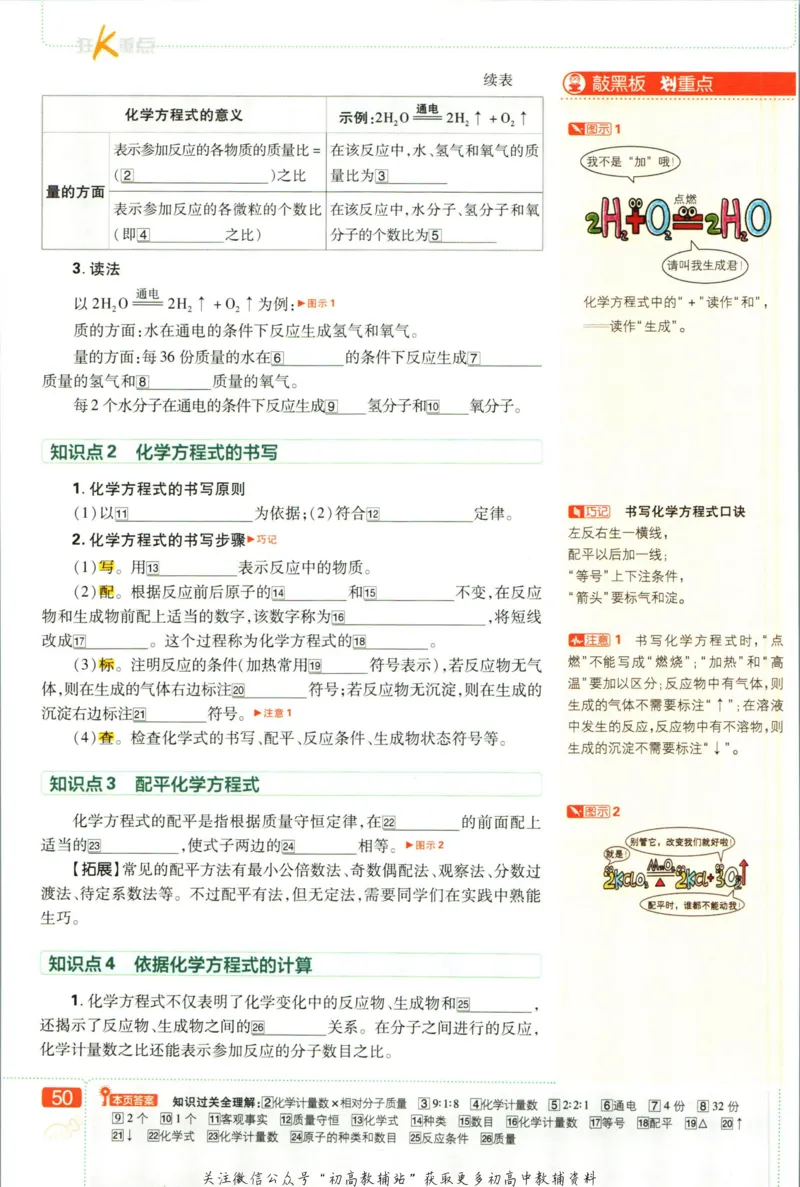 狂K重点
续表
化学方程式的意义 示例:2H₂O 通电 2H₂↑+O₂↑
量的方面
表示参加反应的各物质的质量比= 在该反应中,水、氢气和氧气的质
(2________)之比 量比为3________
表示参加反应的各微粒的个数比 在该反应中,水分子、氢分子和氧
(即4________之比) 分子的个数比为5________
3. 读法
以 2H₂O 通电 2H₂↑+O₂↑为例:▶图示1
质的方面:水在通电的条件下反应生成氢气和氧气。
量的方面:每36份质量的水在6________的条件下反应生成7________
质量的氢气和8________质量的氧气。
每2个水分子在通电的条件下反应生成9____氢分子和10____氧分子。
知识点2 化学方程式的书写
1. 化学方程式的书写原则
(1)以11________为依据;(2)符合12________定律。
2. 化学方程式的书写步骤▶巧记
(1)写。用13________表示反应中的物质。
(2)配。根据反应前后原子的14________和15________不变,在反应
物和生成物前配上适当的数字,该数字称为16________,将短线
改成17________。这个过程称为化学方程式的18________。
(3)标。注明反应的条件(加热常用19________符号表示),若反应物无气
体,则在生成的气体右边标注20________符号;若反应物无沉淀,则在生成的
沉淀右边标注21________符号。▶注意1
(4)查。检查化学式的书写、配平、反应条件、生成物状态符号等。
知识点3 配平化学方程式
化学方程式的配平是指根据质量守恒定律,在22________的前面配上
适当的23________,使式子两边的24________相等。▶图示2
【拓展】常见的配平方法有最小公倍数法、奇数偶配法、观察法、分数过
渡法、待定系数法等。不过配平有法,但无定法,需要同学们在实践中熟能
生巧。
知识点4 依据化学方程式的计算
1. 化学方程式不仅表明了化学变化中的反应物、生成物和25________,
还揭示了反应物、生成物之间的26________关系。在分子之间进行的反应,
化学计量数之比还能表示参加反应的分子数目之比。
敲黑板 划重点
图示1
我不是“加”哦!
2H₂+O₂ 点燃 2H₂O
请叫我生成君!
化学方程式中的“+”读作“和”,
══读作“生成”。
巧记 书写化学方程式口诀
左反右生一横线,
配平以后加一线;
“等号”上下注条件,
“箭头”要标气和淀。
注意1 书写化学方程式时,“点
燃”不能写成“燃烧”;“加热”和“高
温”要加以区分;反应物中有气体,则
生成的气体不需要标注“↑”;在溶液
中发生的反应,反应物中有不溶物,则
生成的沉淀不需要标注“↓”。
图示2
就是!
别管它,改变我们就好啦!
2KClO₃ MnO₂ △ 2KCl+3O₂↑
配平时,谁都不能动我!
50
本页答案 知识过关全理解:2化学计量数×相对分子质量 3 9:1:8 4化学计量数 5 2:2:1 6通电 7 4份 8 32份
9 2个 10 1个 11客观事实 12质量守恒 13化学式 14种类 15数目 16化学计量数 17等号 18配平 19△ 20↑
21↓ 22化学式 23化学计量数 24原子的种类和数目 25反应条件 26质量
关注微信公众号“初高教辅站”获取更多初高中教辅资料